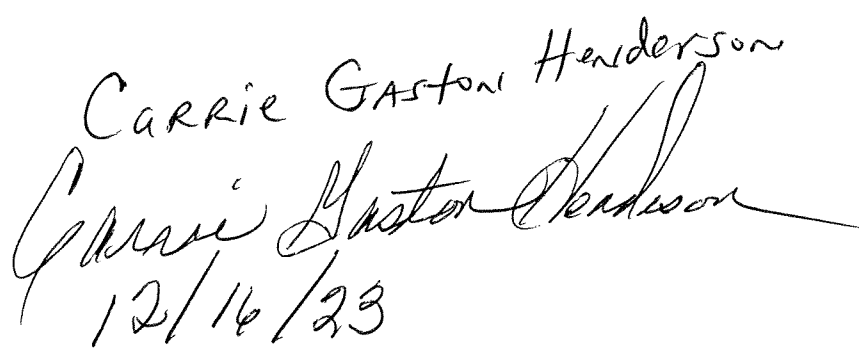 Carrie Gaston Henderson
Carrie Gaston Henderson
12/16/23